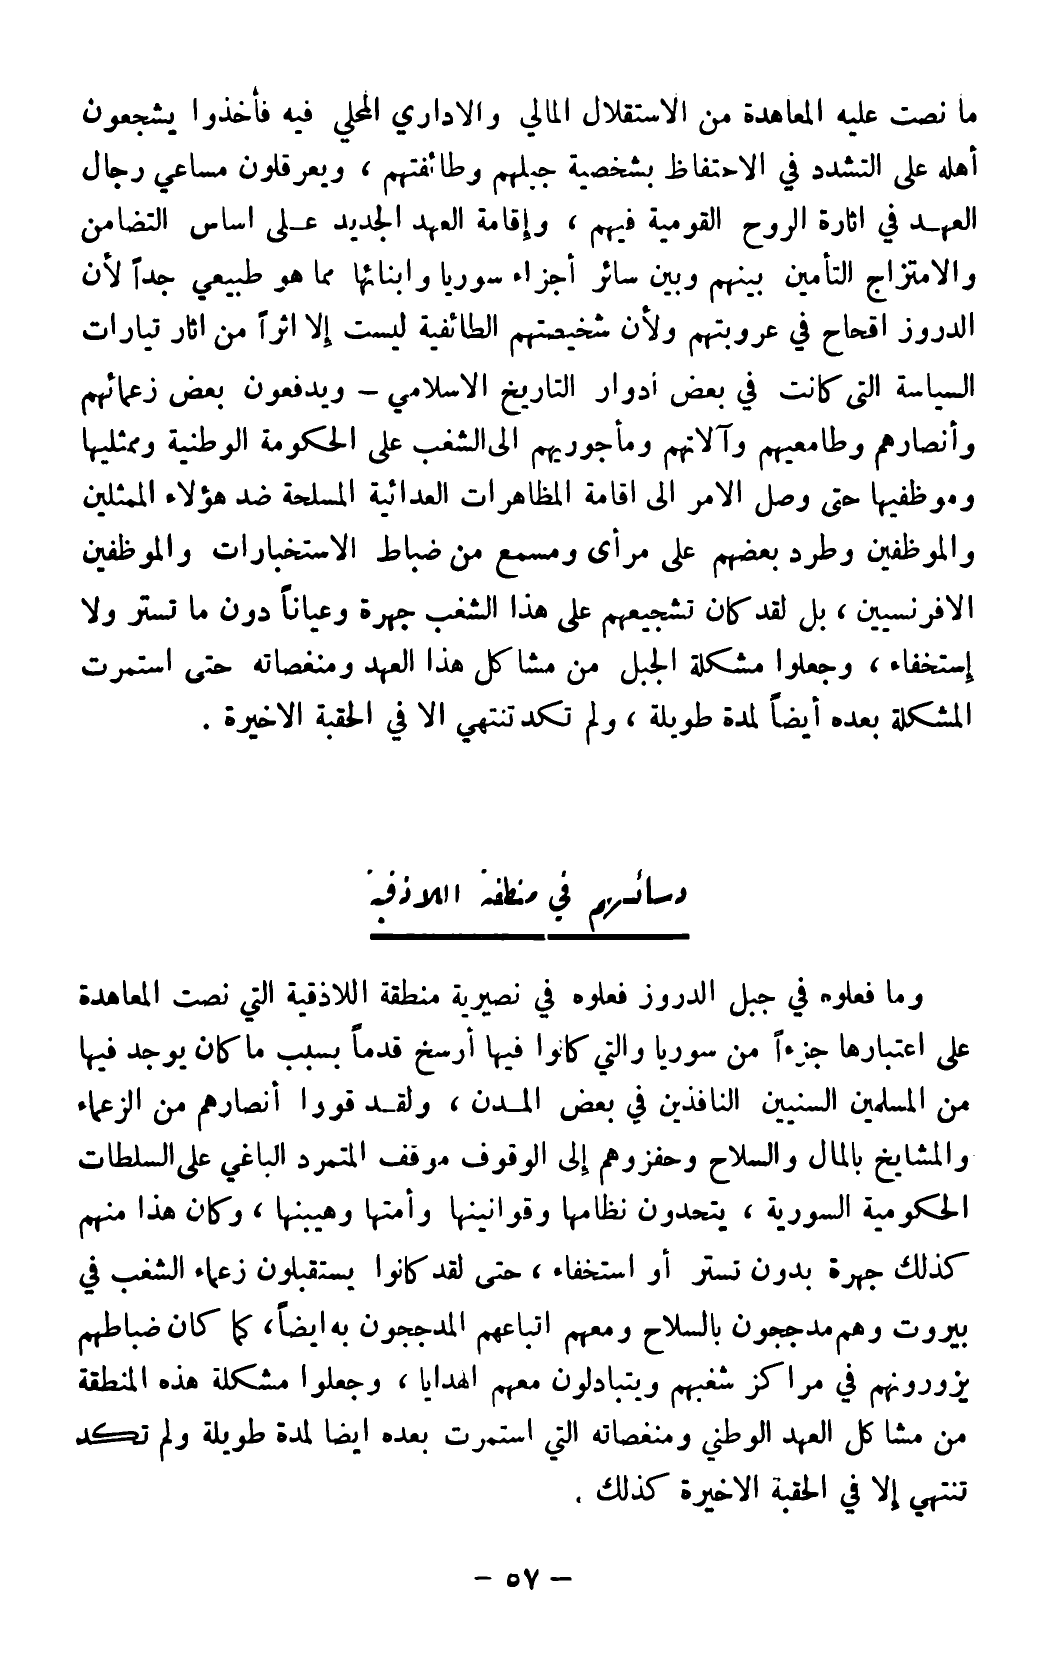 ما نصت عليه المعاهدة من الاستقلال المالي والاداري المحلي فيه فأخذوا يشجعون
أهله على التشدد في الاحتفاظ بشخصية جبلهم وطائفتهم ، ويعرقلون مساعي رجال
العهد في اثارة الروح القومية فيهم ، وإقامة العهد الجديد على اساس التضامن
والامتزاج التأمين بينهم وبين سائر أجزاء سوريا وابنائها مما هو طبيعي جداً لأن
الدروز اقحاح في عروبتهم ولأن شخيصتهم الطائفية ليست إلا اثراً من اثار تيارات
السياسة التي كانت في بعض أدوار التاريخ الاسلامي – ويدفعون بعض زعمائهم
وأنصارهم وطامعيهم وآلاتهم ومأجوريهم الى الشغب على الحكومة الوطنية وممثليها
وموظفيها حتى وصل الامر الى اقامة المظاهرات العدائية المسلحة ضد هؤلاء الممثلين
والموظفين وطرد بعضهم على مرأى ومسمع من ضباط الاستخبارات والموظفين
الافرنسيين ، بل لقد كان تشجيعهم على هذا الشغب جهرة وعياناً دون ما تستر ولا
إستخفاء ، وجعلوا مشكلة الجبل من مشاكل هذا العهد ومنغصاته حتى استمرت
المشكلة بعده أيضاً لمدة طويلة ، ولم تكد تنتهي الا في الحقبة الاخيرة .
دسائسهم في منطقة اللاذقية
وما فعلوه في جبل الدروز فعلوه في نصيرية منطقة اللاذقية التي نصت المعاهدة
على اعتبارها جزءاً من سوريا والتي كانوا فيها أرسخ قدماً بسبب ما كان يوجد فيها
من المسلمين السنيين النافذين في بعض المدن ، ولقد قووا أنصارهم من الزعماء
والمشايخ بالمال والسلاح وحفزوهم إلى الوقوف موقف المتمرد الباغي على السلطات
الحكومية السورية ، يتحدون نظامها وقوانينها وأمتها وهيبنها ، وكان هذا منهم
كذلك جهرة بدون تستر أو استخفاء ، حتى لقد كانوا يستقبلون زعماء الشغب في
بيروت وهم مدججون بالسلاح ومعهم اتباعهم المدججون به ايضاً، كما كان ضباطهم
يزورونهم في مراكز شغبهم ويتبادلون معهم الهدايا ، وجعلوا مشكلة هذه المنطقة
من مشاكل العهد الوطني ومنغصاته التي استمرت بعده ايضا لمدة طويلة ولم تكد
تنتهي إلا في الحقبة الاخيرة كذلك .
– ٥٧ –